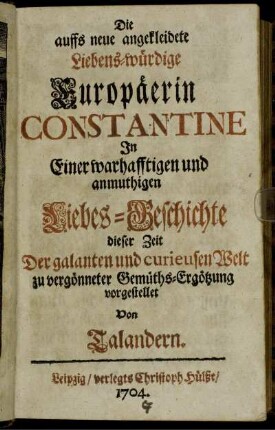 Die
auffs neue angekleidete
Liebens-würdige
Europäerin
CONSTANTINE
In
Einer warhafftigen und
anmuthigen
Liebes-Geschichte
dieser Zeit
Der galanten und curieusen Welt
zu vergönneter Gemüths-Ergötzung
vorgestellet
Von
Talandern.
Leipzig/ verlegts Christoph Hülße/
1704.